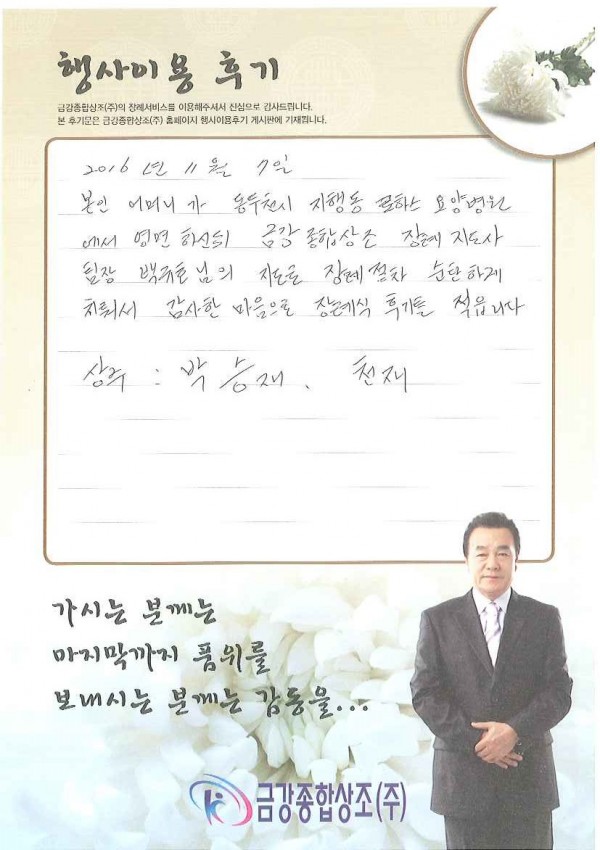 행사이용 후기
금강종합상조(주)의 장례서비스를 이용해주셔서 진심으로 감사드립니다.
본 후기문은 금강종합상조(주) 홈페이지 행사이용후기 게시판에 기재됩니다.
2016 년 11월 7일
본인 어머니가 동두천시 지행동 요양병원
에서 영면 하신의 금강종합상조 장례지도사
팀장 백규호님의 지도로 장례절차 순탄하게
치뤄서 감사한 마음으로 장례식 후기를 적읍니다
상주 : 박승재, 천재
가시는 분께는
마지막까지 품위를
보내시는 분께는 감동을...
금강종합상조(주)